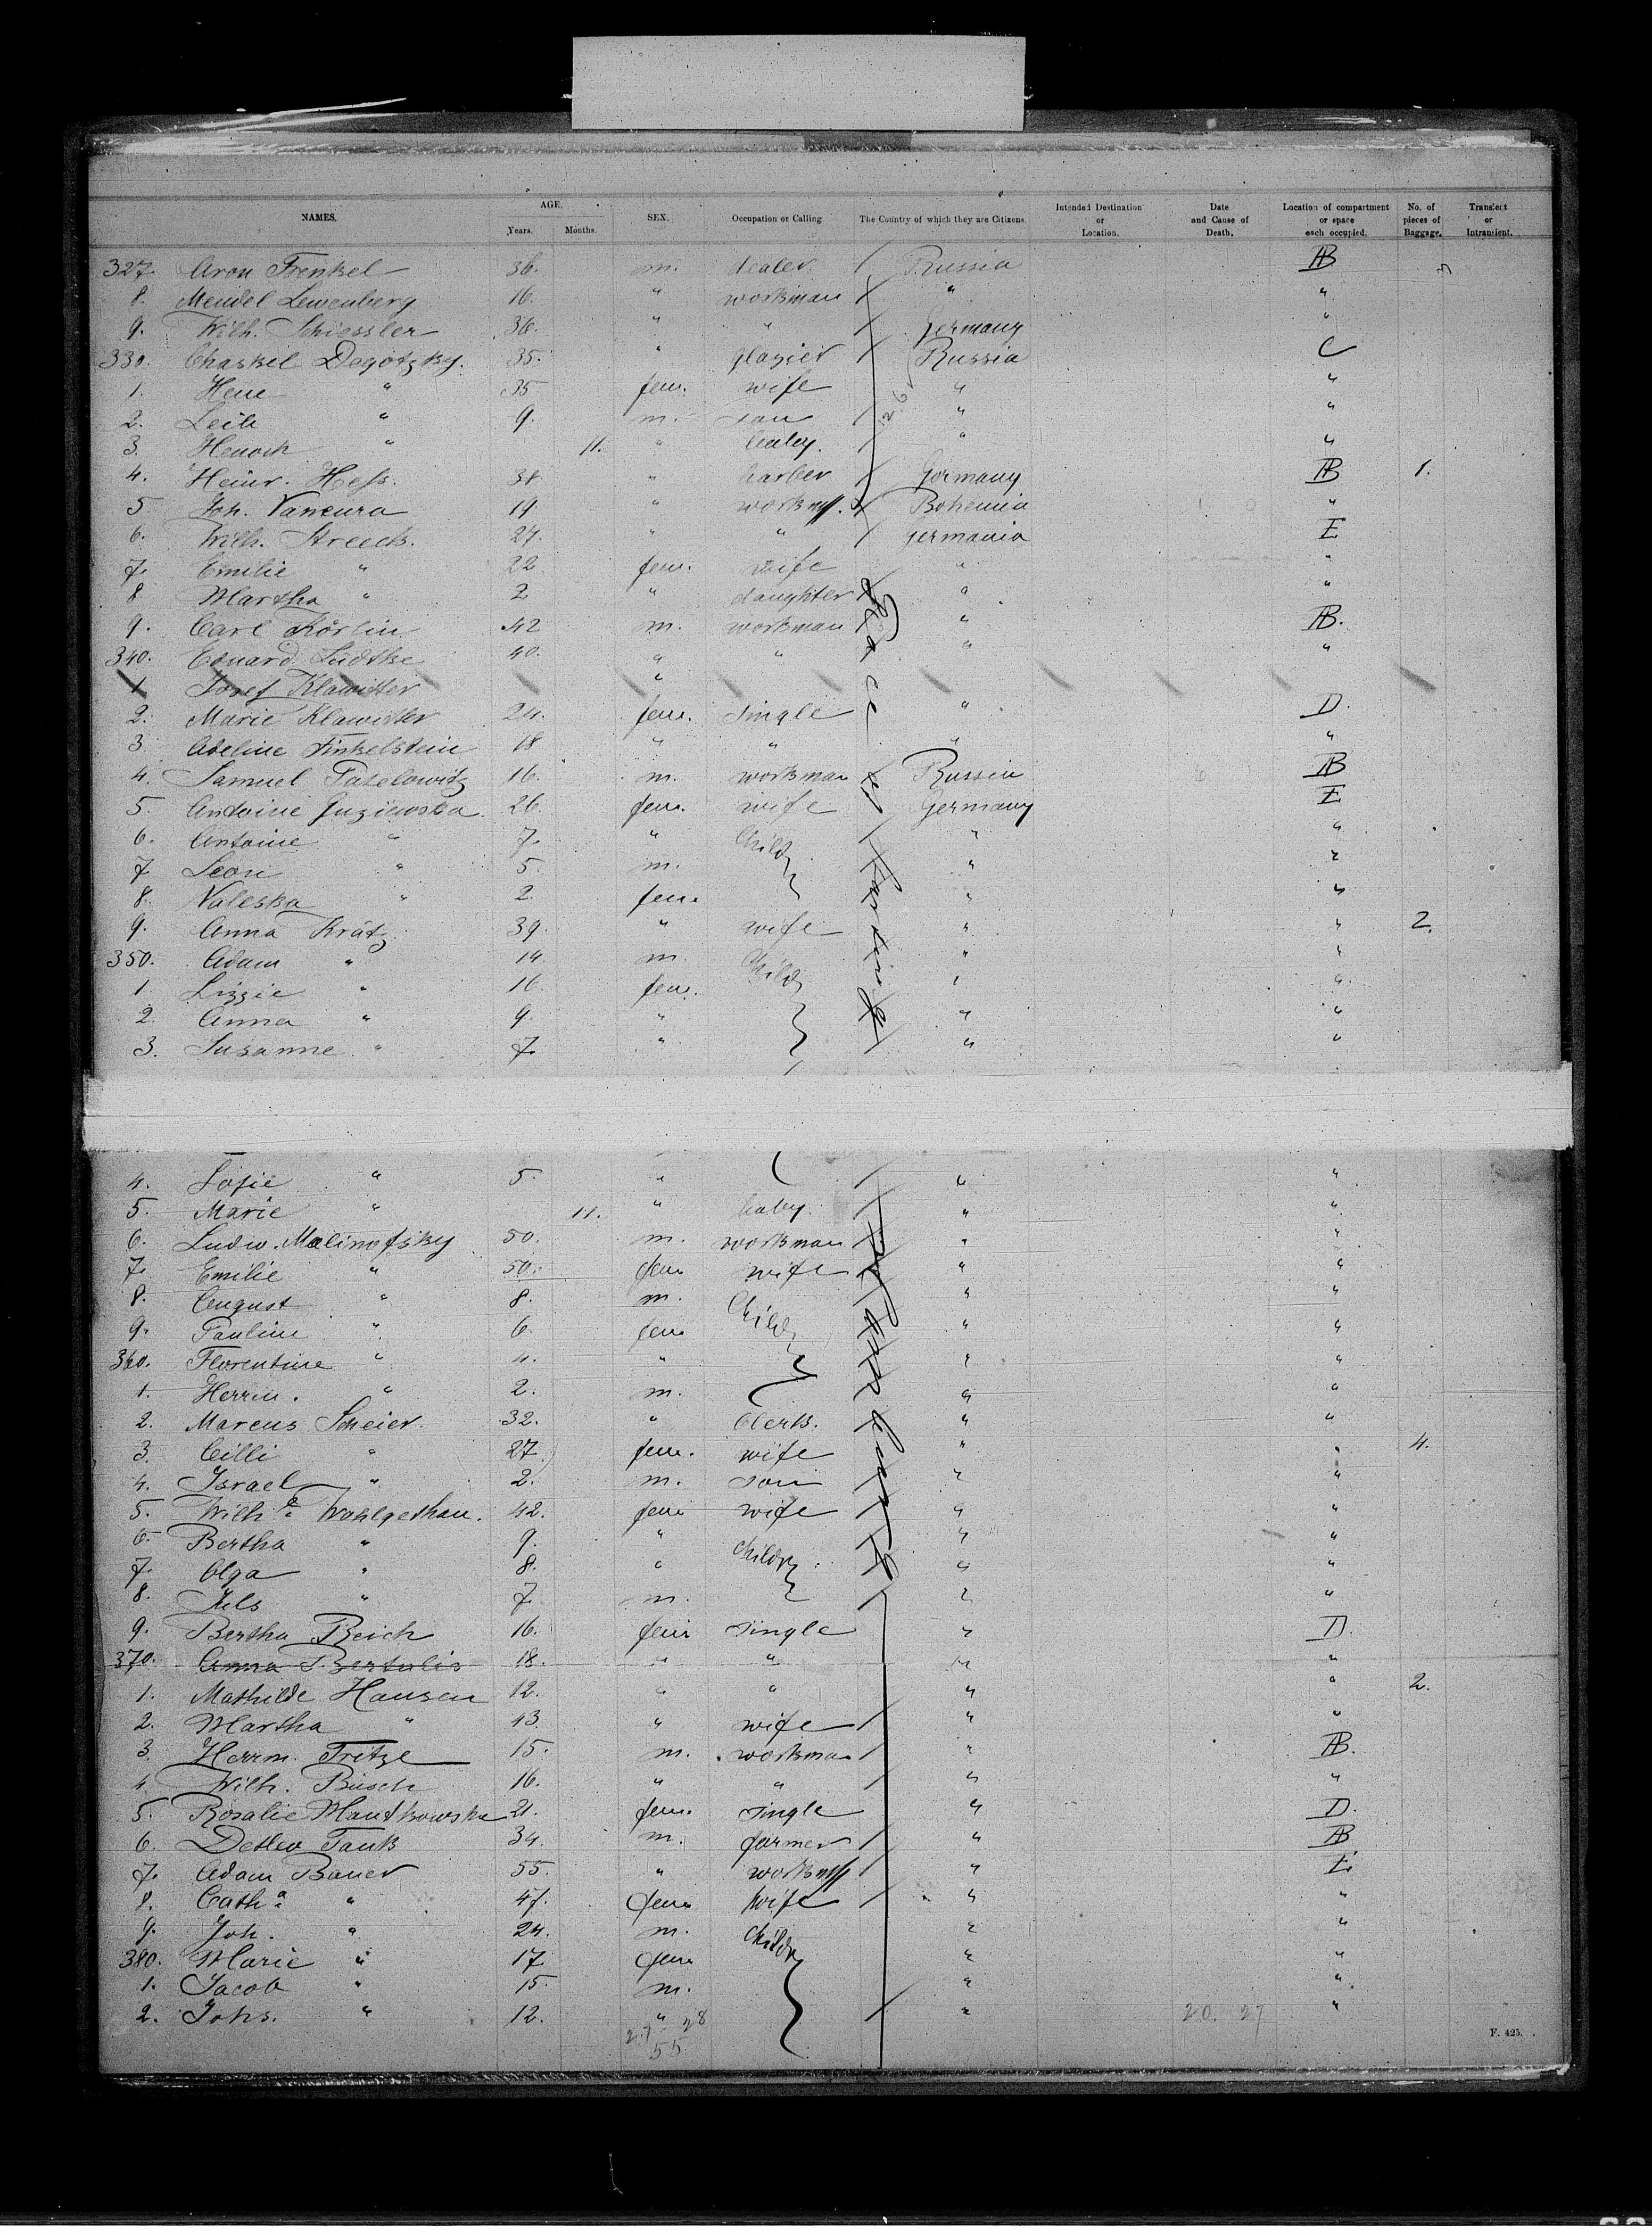 NAMES. AGE. Years. Months. SEX. Occupation or Calling The Country of which they are Citizens. Intended Destination or Location. Date and Cause of Death. Location of compartment or space each occupied. No. of pieces of Baggage. Transient or Intransient.
327. Aron Frenkel 36. m. dealer Russia AB
8. Mendel Lewenberg 16. " workman " "
9. Wilh. Schiessler 36. " " Germany "
330. Chaskel Dogotzky. 35. " glazier Russia C
1. Hene " 35 fem. wife " "
2. Leib " 9. m. son " "
3. Henoch " 11. " baby. " "
4. Heinr. Hess. 38 " barber Germany AB 1.
5 Joh. Vancura 19 " workm. Bohemia "
6. Wilh. Streeck. 27. " " Germania E
7. Emilie " 22 fem. wife " "
8 Martha " 2 " daughter " "
9. Carl Körlin 42 m. workman " AB.
340. Eduard Lüdtke 40. " " " "
1 Josef Klawitter "
2. Marie Klawitter 24. fem. single " D.
3 Adeline Finkelstein 18 " " " "
4. Samuel Paselowitz 16. m. workman Russia AB
5. Antoine Guziewska 26. fem. wife Germany E
6. Antoine " 7. " Childr " "
7 Leon " 5. m. " "
8. Valeska " 2. fem. " "
9. Anna Krätz 39. " wife " " 2.
350. Adam " 14 m. Childr " "
1. Lizzie " 16. fem. " "
2. Anna " 9. " " "
3. Susanne " 7. " " "
4. Sofie " 5. " " "
5. Marie " 11. " baby " "
6. Ludw. Malinofsky 50. m. workman " "
7. Emilie " 50. fem wife " "
8. August " 8. m. Childr " "
9. Pauline " 6. fem " "
360. Florentine " 4. " " "
1. Herrm. " 2. m. " "
2. Marcus Scheier 32. " Clerk. " "
3. Cilli " 27. fem. wife " " 4.
4. Israel " 2. m. son " "
5. Wilh.e Wohlgethan. 42. fem wife " "
6. Bertha " 9. " Childr. " "
7. Olga " 8. " " "
8. Nels " 7. m. " "
9. Bertha Reich 16. fem single " D.
370. Anna Bertulis 18. " " " "
1. Mathilde Hansen 12. " " " " 2.
2. Martha " 43. " wife " "
3. Herrm. Fritze 15. m. workman " AB.
4 Wilh. Busch 16. " " " "
5. Rosalie Mantkowska 21. fem. single " D.
6. Detlev Tank 34. m. farmer " AB
7. Adam Bauer 55. " workm " E
8. Cath.a " 47. fem wife " "
9. Joh. " 24. m. Childr " "
380. Marie " 17 fem " "
1. Jacob " 15. m. " "
2. Johs. " 12. " " 20. 27 "
27 28
55
F. 425.